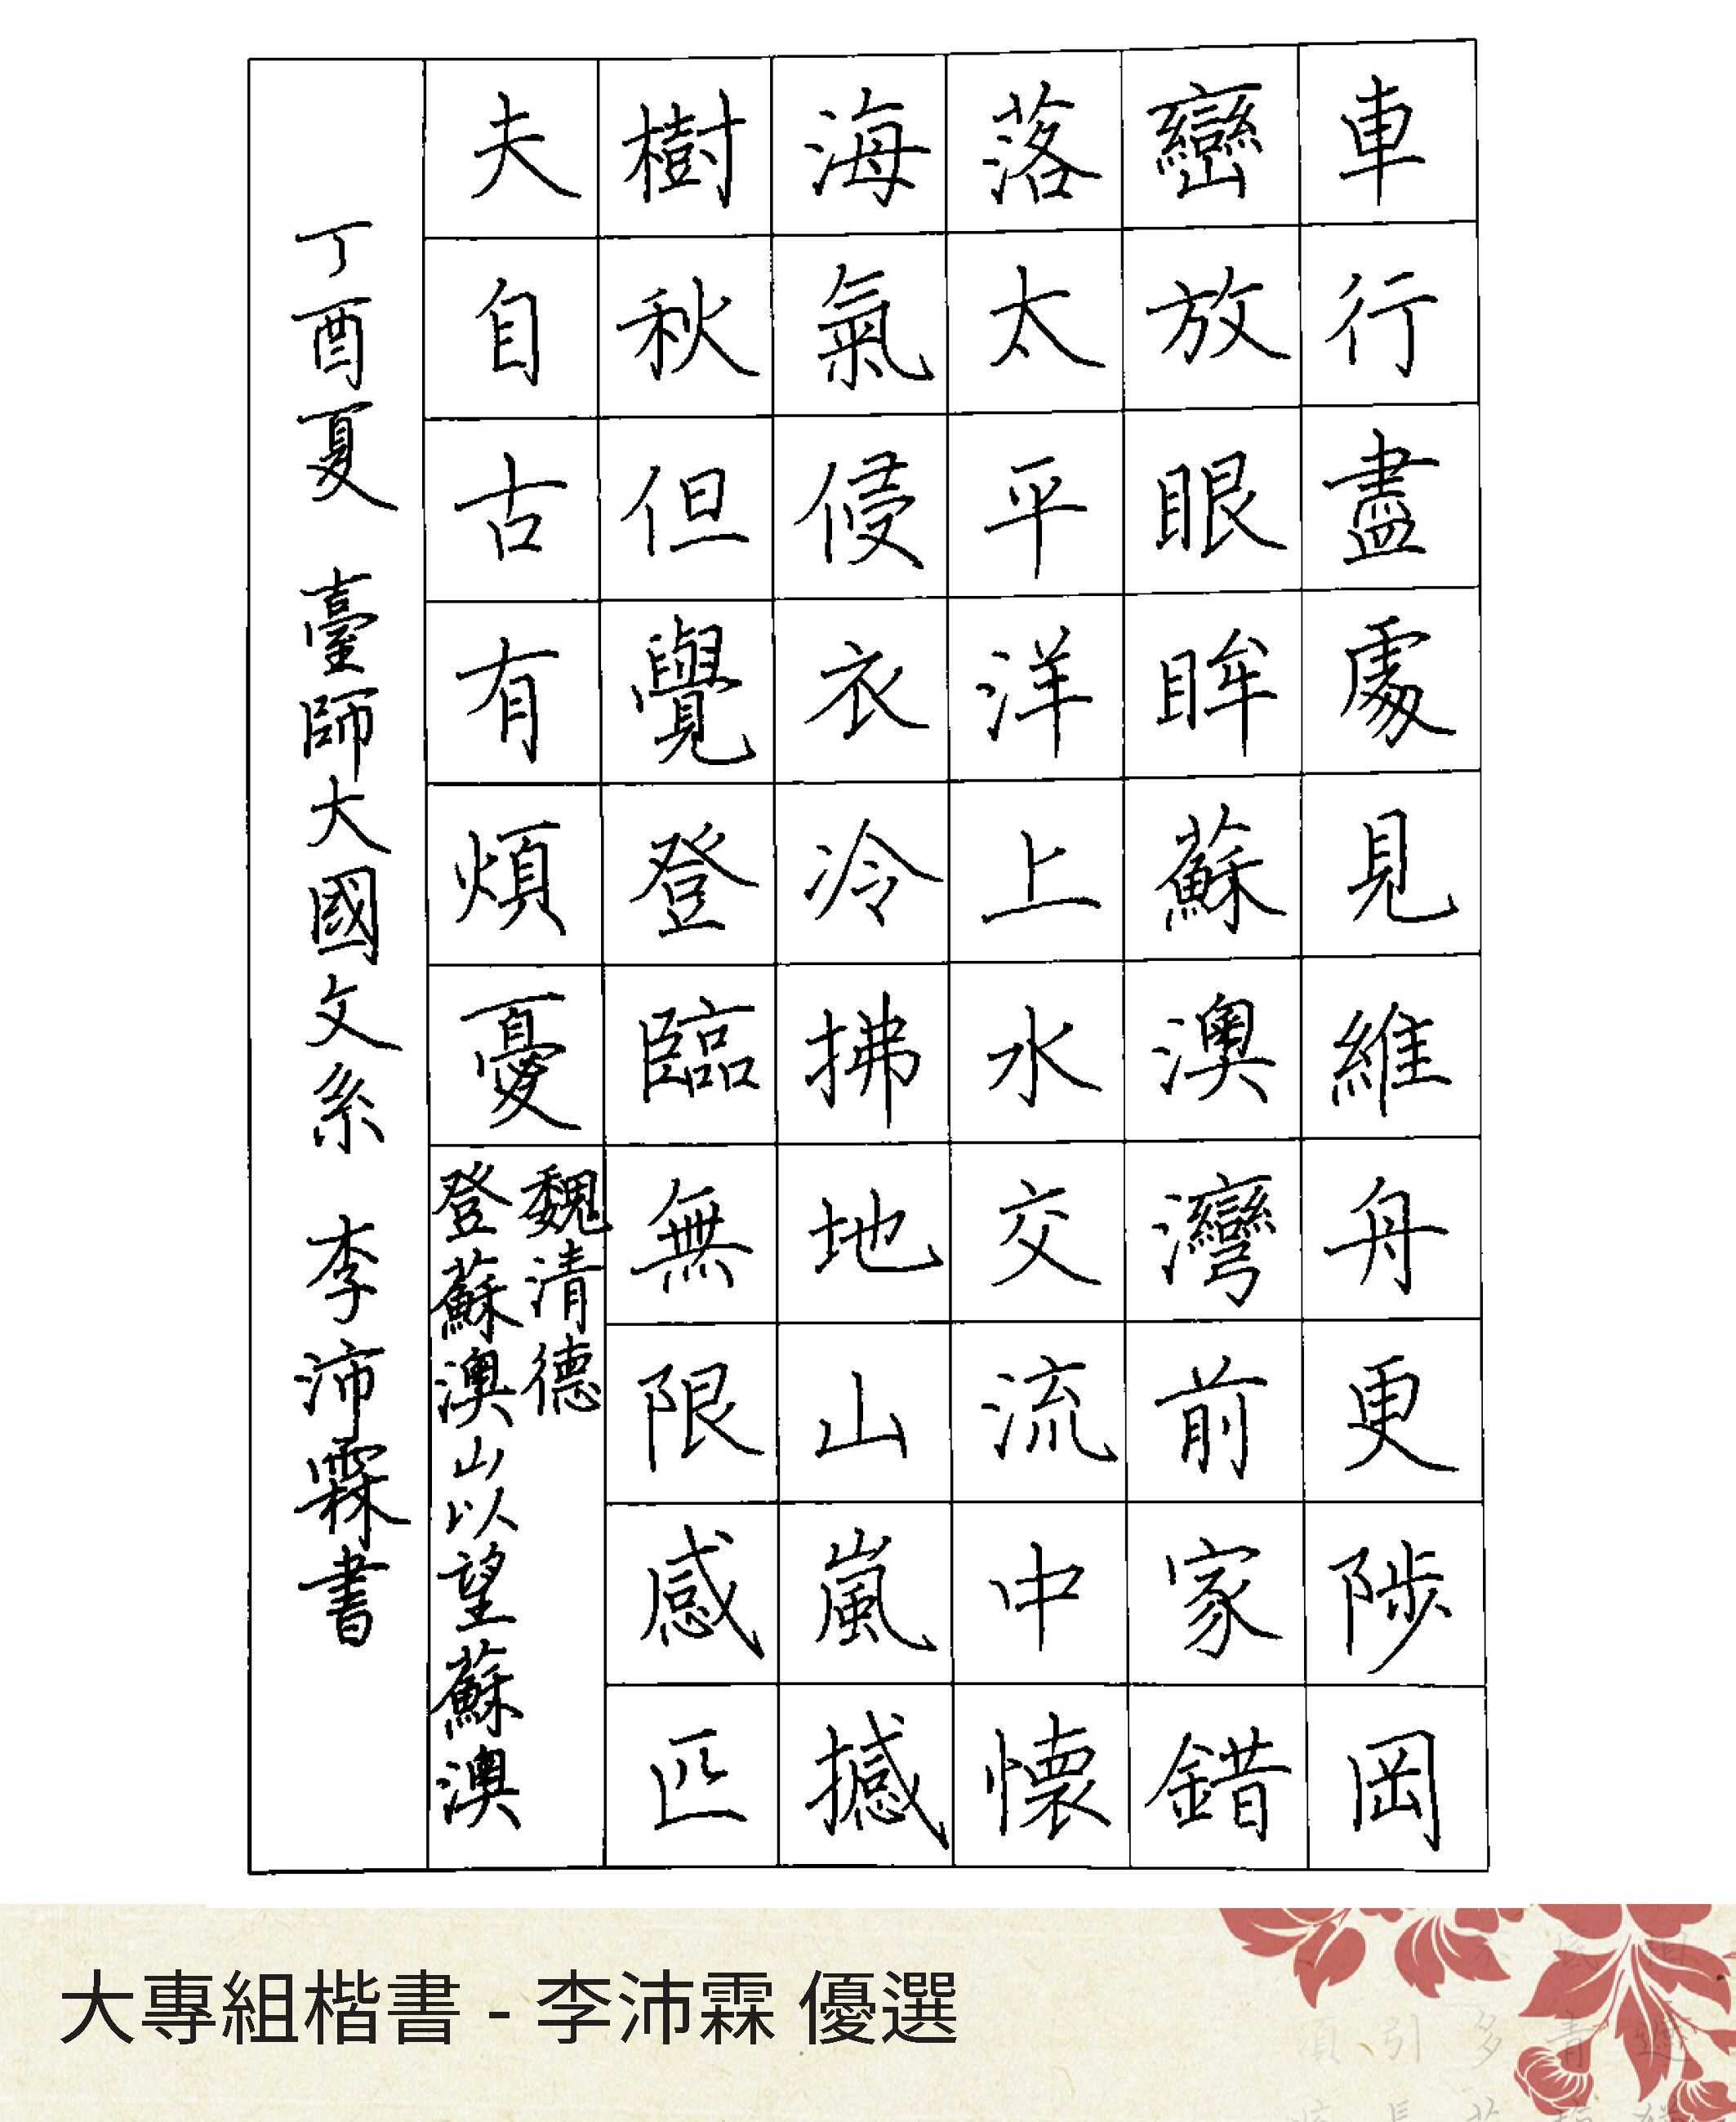 車行盡處見維舟更陟岡
巒放眼眸蘇澳灣前家錯
落太平洋上水交流中懷
海氣侵衣冷拂地山嵐撼
樹秋但覺登臨無限感匹
夫自古有煩憂
魏清德
登蘇澳山以望蘇澳
丁酉夏 臺師大國文系 李沛霖書
大專組楷書 - 李沛霖 優選